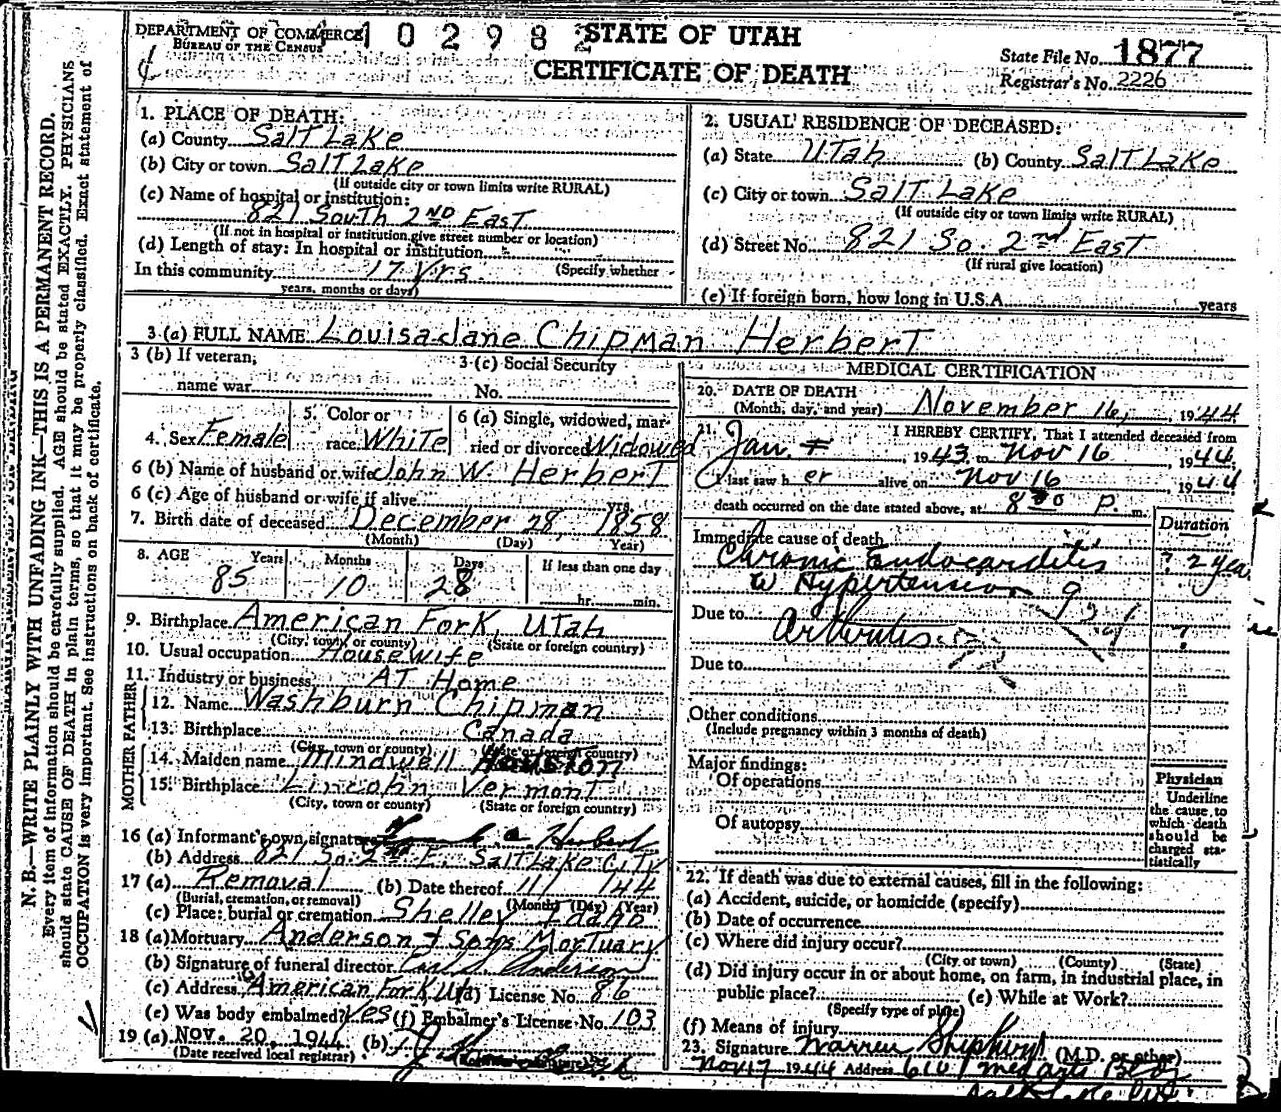 DEPARTMENT OF COMMERCE
BUREAU OF THE CENSUS
102982
STATE OF UTAH
CERTIFICATE OF DEATH
State File No. 1877
Registrar's No. 2226
N. B.—WRITE PLAINLY WITH UNFADING INK—THIS IS A PERMANENT RECORD.
Every item of information should be carefully supplied. AGE should be stated EXACTLY. PHYSICIANS
should state CAUSE OF DEATH in plain terms, so that it may be properly classified. Exact statement of
OCCUPATION is very important. See instructions on back of certificate.
1. PLACE OF DEATH:
(a) County Salt Lake
(b) City or town Salt Lake
(If outside city or town limits write RURAL)
(c) Name of hospital or institution:
821 South 2ND East
(If not in hospital or institution give street number or location)
(d) Length of stay: In hospital or institution
In this community 17 Yrs. (Specify whether
years, months or days)
2. USUAL RESIDENCE OF DECEASED:
(a) State Utah (b) County Salt Lake
(c) City or town Salt Lake
(If outside city or town limits write RURAL)
(d) Street No. 821 So. 2nd East
(If rural give location)
(e) If foreign born, how long in U.S.A. years
3 (a) FULL NAME Louisa Jane Chipman Herbert
3 (b) If veteran, name war
3 (c) Social Security No.
4. Sex Female
5. Color or race White
6 (a) Single, widowed, married or divorced Widowed
6 (b) Name of husband or wife John W. Herbert
6 (c) Age of husband or wife if alive yrs.
7. Birth date of deceased December 28, 1858
(Month) (Day) Year)
8. AGE Years Months Days If less than one day
85 10 28 hr. min.
9. Birthplace American Fork, Utah
(City, town or county) (State or foreign country)
10. Usual occupation Housewife
11. Industry or business At Home
FATHER
12. Name Washburn Chipman
13. Birthplace Canada
(City, town or county) (State or foreign country)
MOTHER
14. Maiden name Mindwell Houston
15. Birthplace Lincoln, Vermont
(City, town or county) (State or foreign country)
16 (a) Informant's own signature Herbert
(b) Address 821 So. 2nd E. Salt Lake City
17 (a) Removal (b) Date thereof 11/ /44
(Burial, cremation, or removal) (Month) (Day) (Year)
(c) Place: burial or cremation Shelley Idaho
18 (a) Mortuary Anderson & Sons Mortuary
(b) Signature of funeral director Anderson
(c) Address American Fork, Ut (d) License No. 86
(e) Was body embalmed? Yes (f) Embalmer's License No. 103
19 (a) NOV. 20, 1944 (b)
(Date received local registrar)
MEDICAL CERTIFICATION
20. DATE OF DEATH
(Month, day, and year) November 16, 1944
21. I HEREBY CERTIFY, That I attended deceased from
Jan. 1943 to Nov 16, 1944
I last saw h er alive on Nov 16 1944
death occurred on the date stated above, at 8 00 P. m.
Duration
Immediate cause of death
Chronic Endocarditis ? 2 year
w Hypertension
Due to Arthritis ?
Due to
Other conditions
(Include pregnancy within 3 months of death)
Major findings:
Of operations
Of autopsy
Physician
Underline
the cause to
which death
should be
charged sta-
tistically
22. If death was due to external causes, fill in the following:
(a) Accident, suicide, or homicide (specify)
(b) Date of occurrence
(c) Where did injury occur?
(City or town) (County) (State)
(d) Did injury occur in or about home, on farm, in industrial place, in
public place? (e) While at Work?
(Specify type of place)
(f) Means of injury
23. Signature Warren (M.D. or other)
Nov 17 1944 Address 610 Med Arts Bldg
Salt Lake City